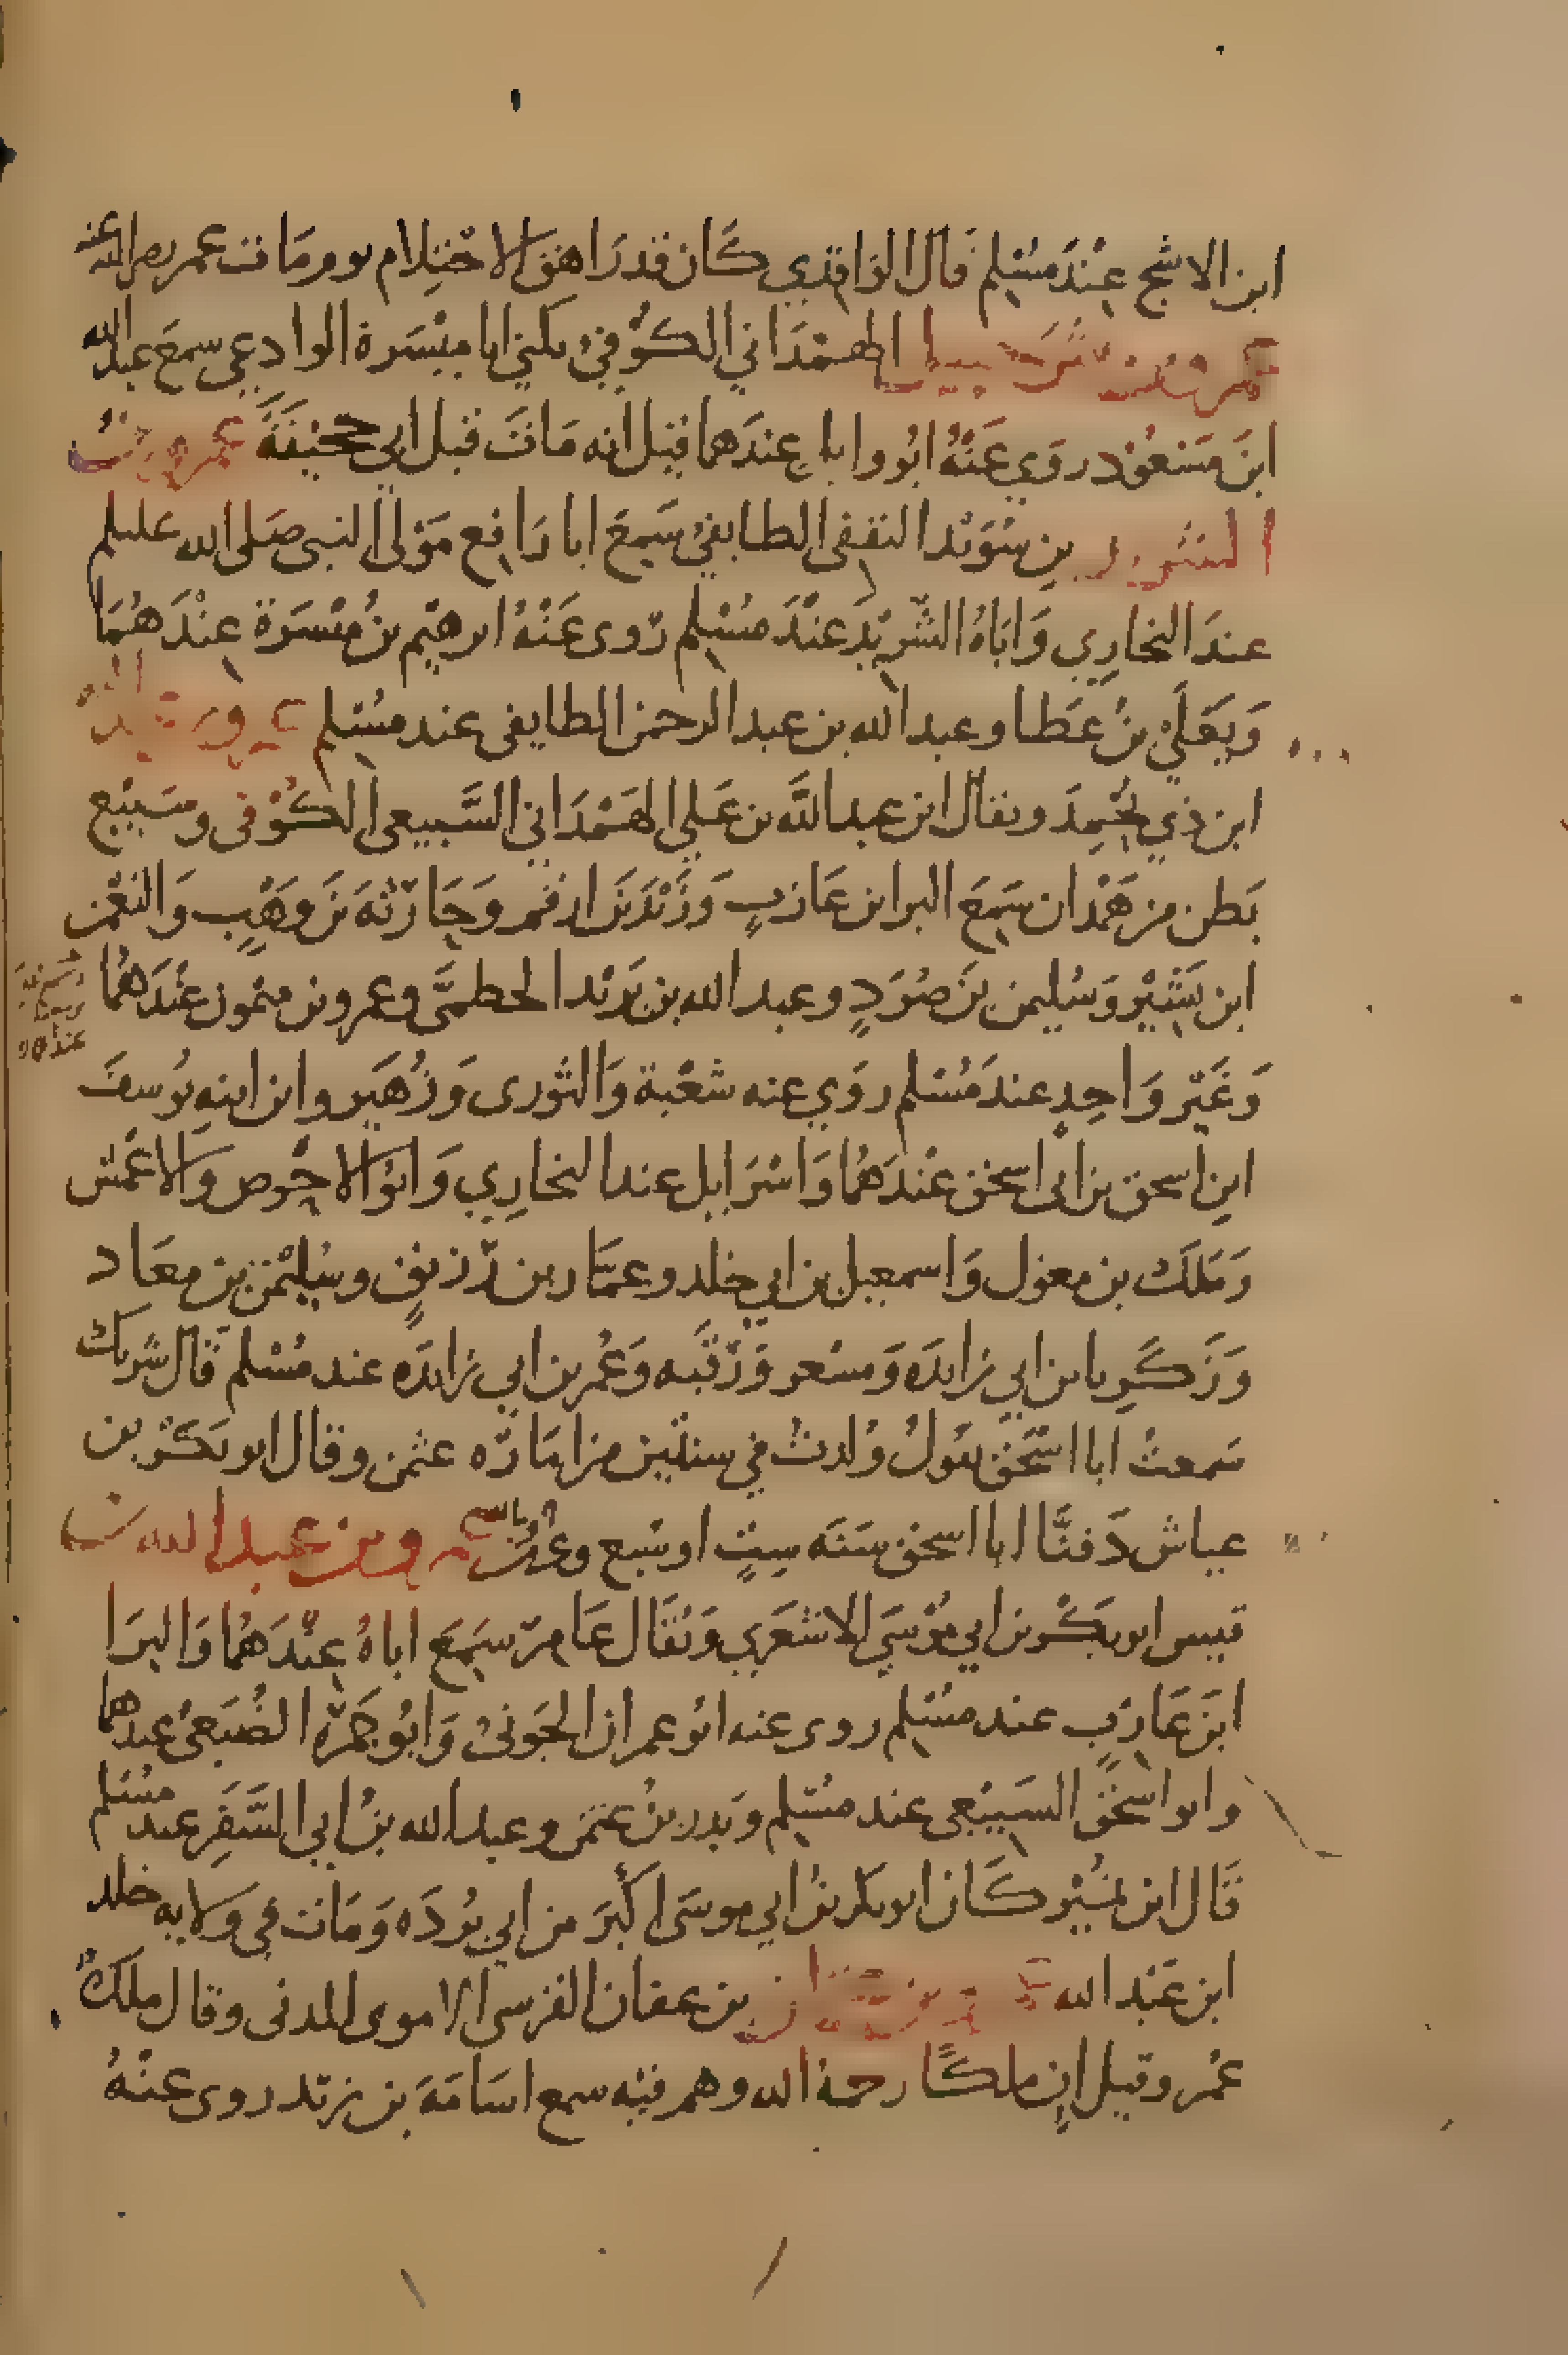 ابن الاشج عِنْدَ مُسْلِم قال الواقدي كَان قد رَاهق الاحْتِلام يوم مَات عمر رضي الله عنه
عمرو بن شرحبيل الهمْدَاني الكُوْفيُ يكني ابا ميْسَرة الوادعي سمعَ عبد الله
ابنَ مَسْعُوْد روَي عَنْهُ ابُو وايل عِندَهما قيل انه مَاتَ قبل ابي جحيفَةَ عمرو بن
الشريد بنِ سُوَيْد الثقفى الطايفيُ سَمِعَ ابا رَافع مَوْلى النبى صَلى الله عليلم
عندَ البخارِي وَابَاهُ الشَّرِيْدَ عنْدَ مُسْلِم رَوى عَنْهُ ابرهيْم بنُ مَيْسَرَة عِنْدَهُمَا
وَيَعْلَيْ بنُ عَطا وعبد الله بن عبد الرحمن الطايفى عند مسْلِم عمرو بن عبد الله
ابن ذي يُحْمِدَ ويقال ابن عبد اللَّه بن عَلي الهَمْدَاني السَّبيعى الكُوْفى وسَبيْع
بَطن من هَمْدان سَمِعَ البرا بن عَازبٍ وَزَيْدَ بَن ارقم وحَارِثهَ بَن وَهْبٍ وَالنعْمن
ابن بَشيْر وَسُليمن بَن صُرَدٍ وعبد الله بن يَزيْد الخطمىَّ وعمرو بن ميْمون عنْدَهُمَا
وَغَيْر وَاحِدٍ عندَ مُسْلم روَي عنه شعْبة وَالثورى وَزُهَير وابن ابنهِ يوُسفَ
ابنِ اسحق بن ابى اسحٰق عنْدَهُمَا وَاسْرَايل عند البخارِي وَابُو الاحْوص وَالاعْمش
وَمَلك بن مغول وَاسمعيل بن ابي خلد وعمَّار بن رُزيقٍ وسُليْمن بن معَاد
وَزَكَرِيا بن ابي زايدَه وَمسْعر وَرَقَبه وَعُمر بن ابي زايدَه عند مُسْلم قال شريك
سَمعتُ ابا اسْحَق يقولُ وُلدتُ في سنتَين من امَارَه عثمن وقال ابو بَكْر بن
عياش دَفنَّا ابا اسحق سَنَه ستٍ او سَبع وعشرين بأسم عمرو بن عبد الله بن
قيس ابو بَكْر بن ابي مُوْسَي الاشعَرِي وَيُقَال عَامرٌ سَمِعَ اباهُ عِنْدَهُمَا وَالبرَا
ابنَ عَازبٍ عند مسْلم روى عنه ابُو عمران الجَوْنىُ وَابُو جَمْرَه الضُبَعىُ عندهما
وابو اسْحَق السَبيْعى عند مسْلم وَبدر بنُ عثمٰن وعبد الله بنُ ابى السَّفَرِ عند مُسْلم
قَال ابن نُمَيْر كَان ابو بكر بنُ ابي موسَى اكْبَرَ من ابي بُردَه وَمَات في وَلايه خلد
ابن عَبْد الله عمرو بن عثمان بن عفان القرسى الاموى المدنى وقال ملكٌ
عُمر وقيل انِ ملكًا رحمهُ الله وهم فيْه سمع اسَامَةَ بن زيد روى عنْهُ